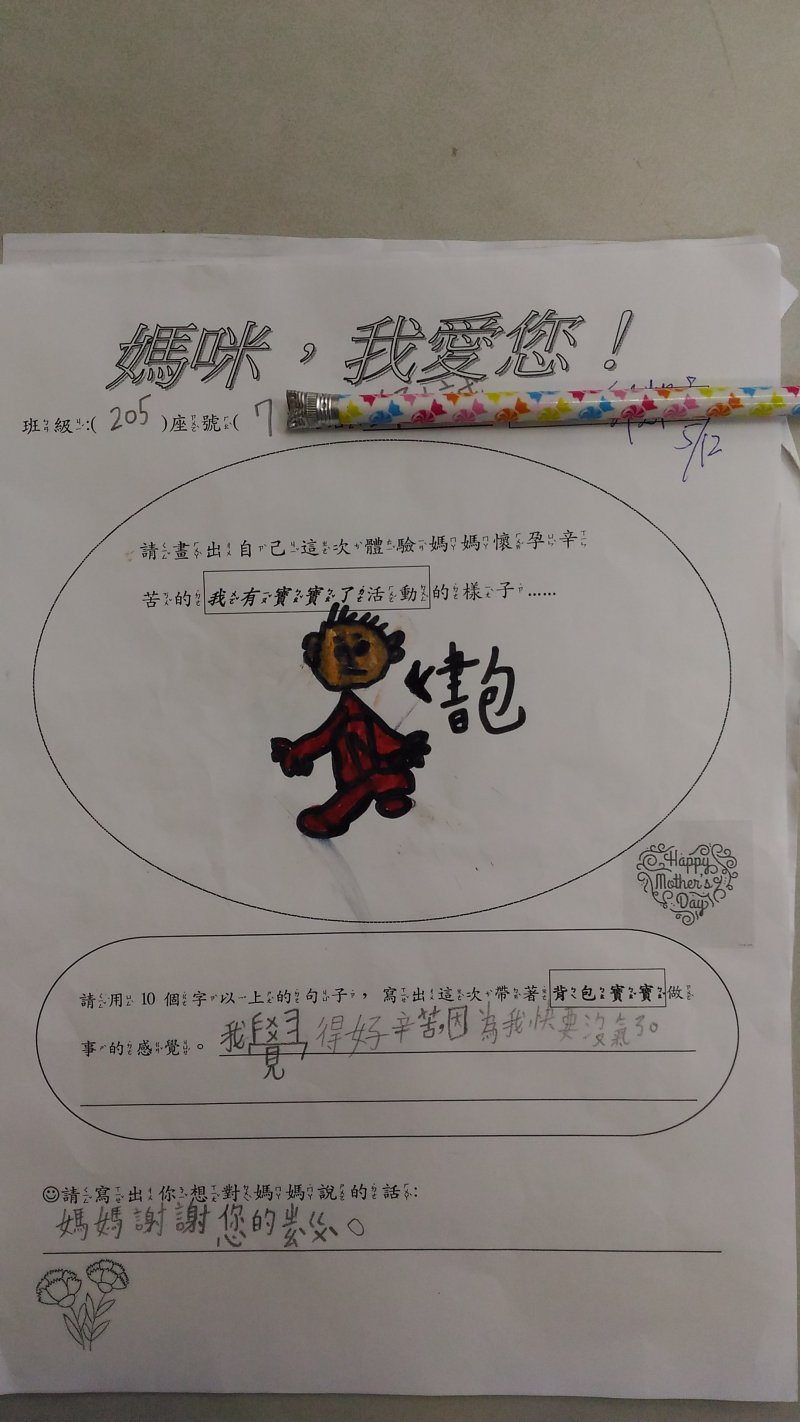 媽咪，我愛您！
班級:( 205 )座號( 7
5/12
請畫出自己這次體驗媽媽懷孕辛
苦的我有寶寶了活動的樣子……
書包
Happy
Mother's
Day
請用 10 個字以上的句子，寫出這次帶著背包寶寶做
事的感覺。我覺得好辛苦,因為我快要沒氣了。
☺請寫出你想對媽媽說的話:
媽媽謝謝您的